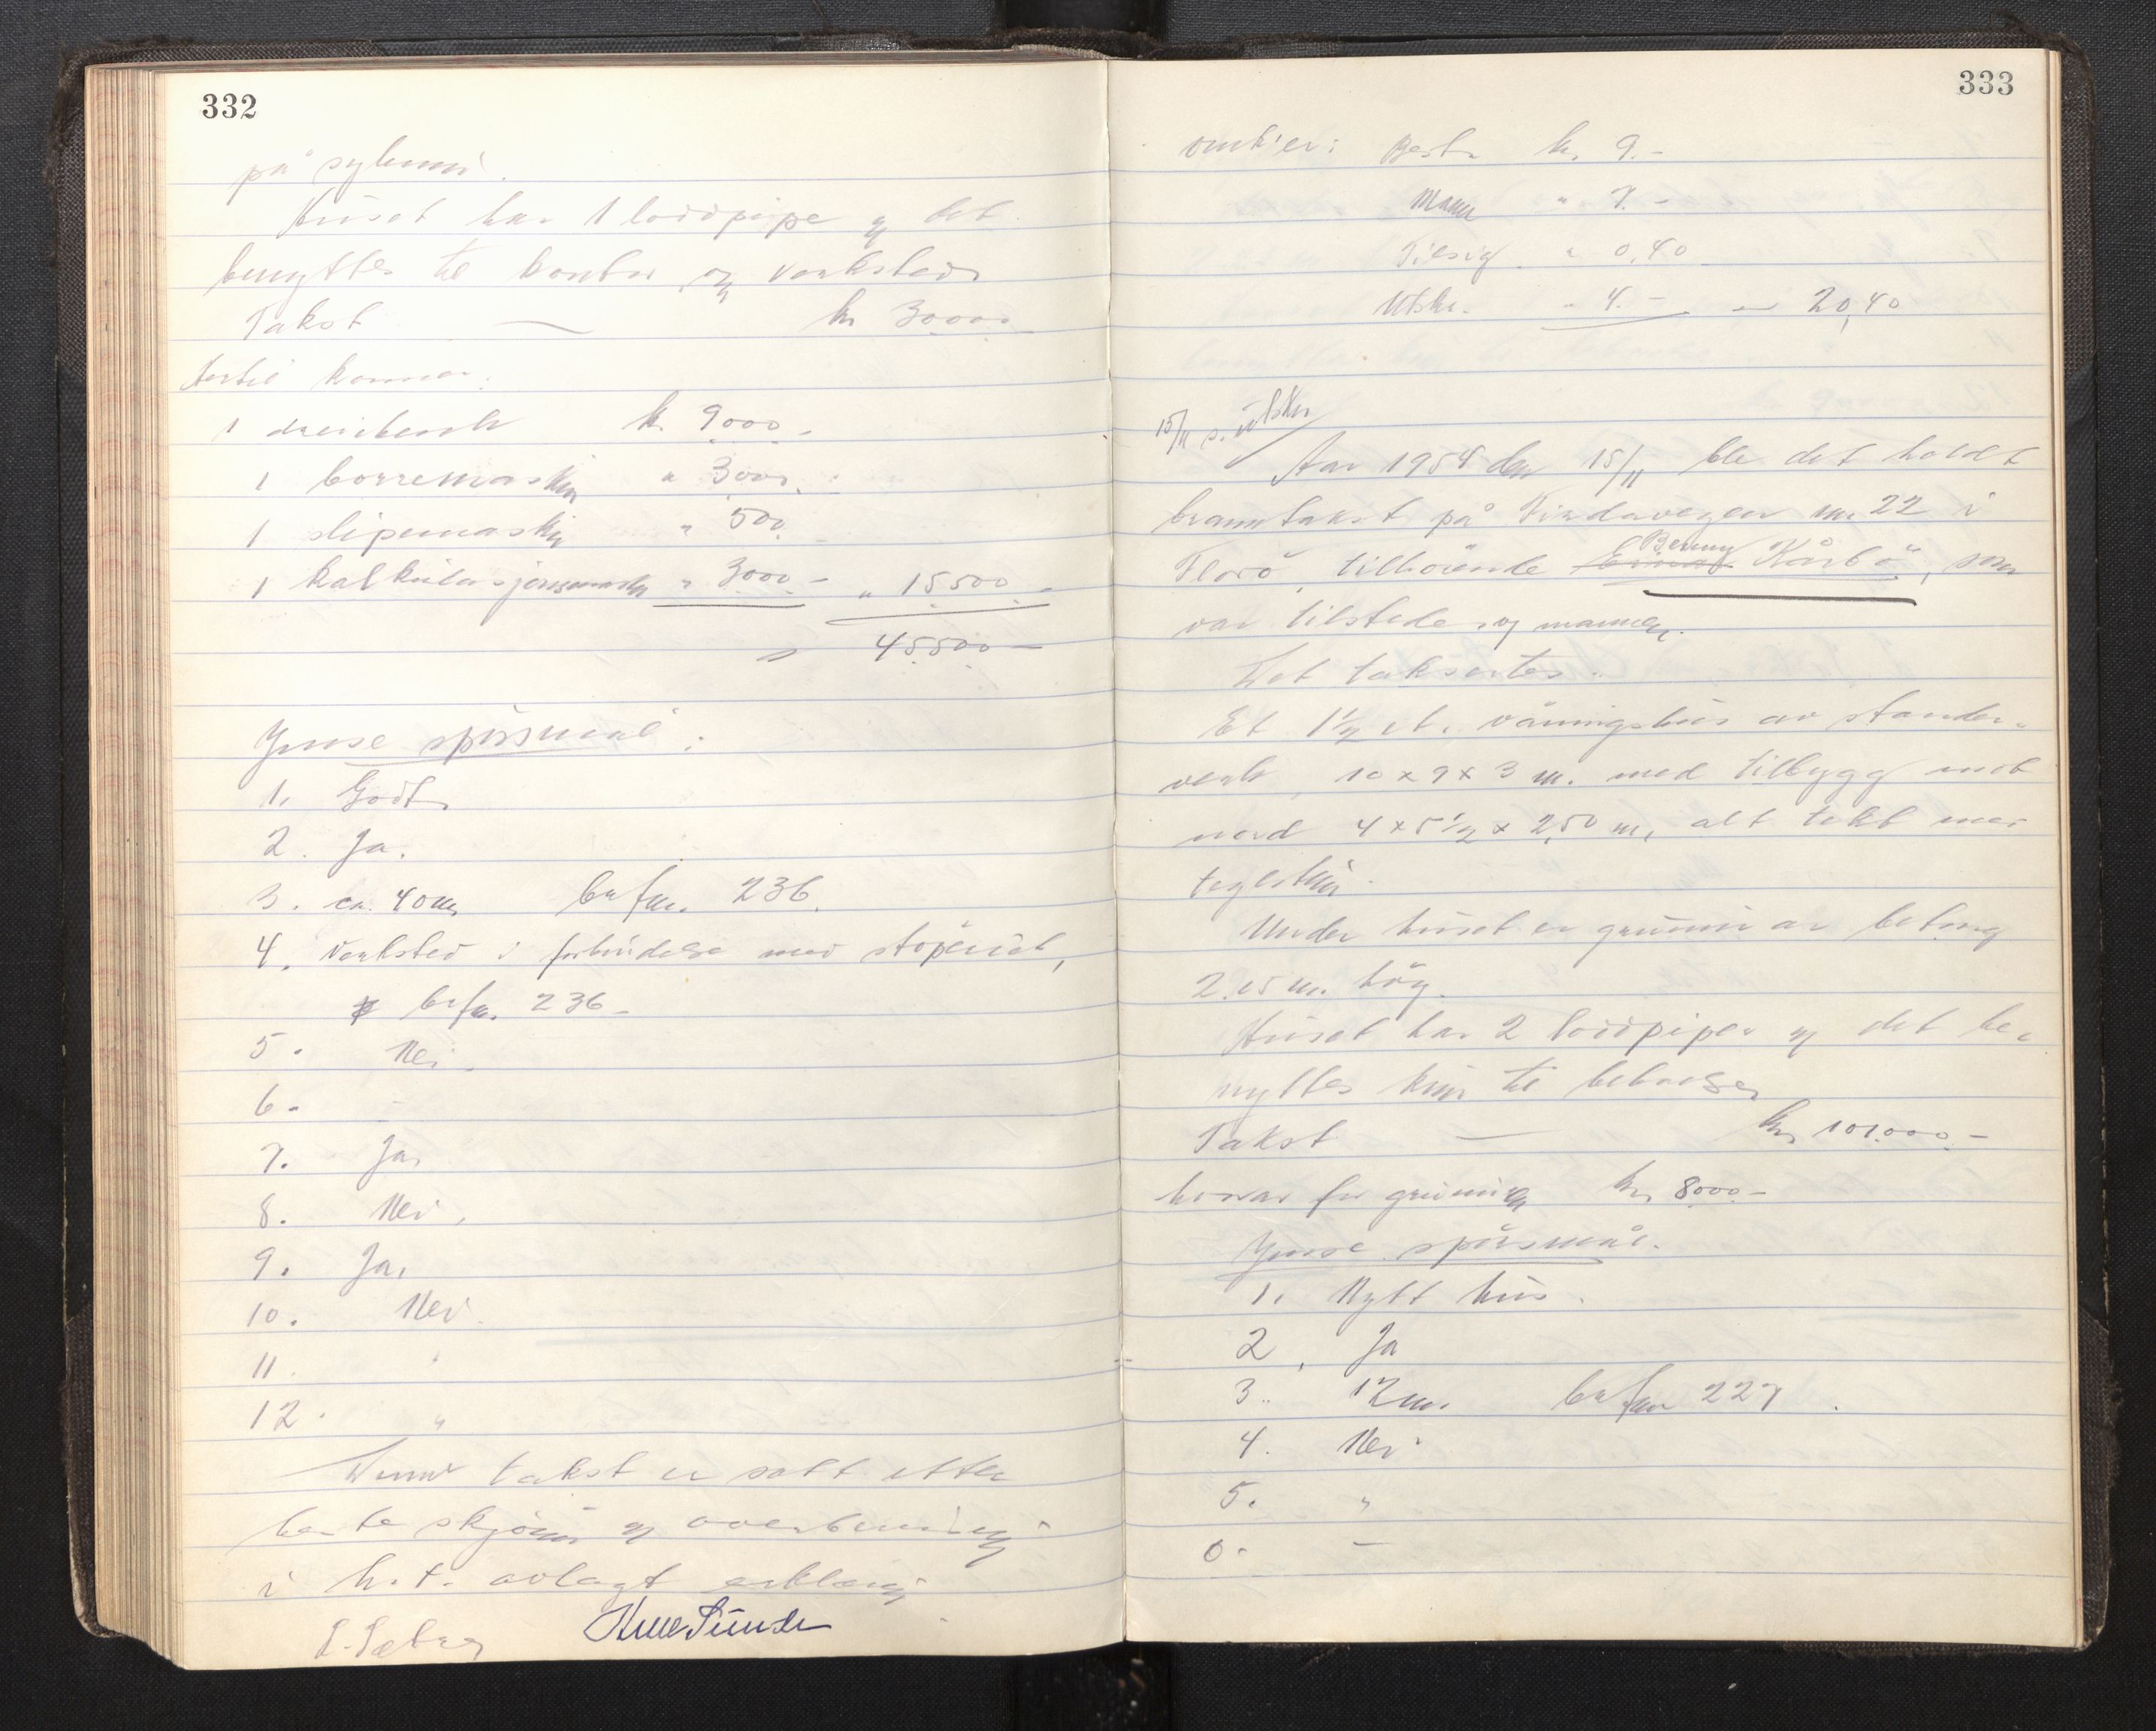 332
på sylinni.
Huset har 1 loddpipe og det
benyttes til kontor og verksted
Takst — kr 30.000.-
Hertil kommer:
1 dreiebenk kr. 9000.-
1 borremaskin " 3000.-
1 slipemaskin " 500.-
1 kalkulasjonsmaskin " 3000.- " 15500.-
" 45500.-
Ymse spørsmål:
1. Godt
2. Ja.
3. ca. 40 m br.fm. 236.
4. Verksted i forbindelse med støperiet,
br.fm. 236.
5. Nei.
6. -
7. Ja.
8. Nei.
9. Ja.
10. Nei.
11. "
12. "
Denne takst er satt etter
beste skjønn og overbevisning
i h.t. avlagt erklæring
333
omk'er: Best. kr. 9.-
Mann " 7.-
Tilsig. " 0.40
Utskr. " 4.- — 20,40
15/11 s. utskr
Aar 1954 den 15/11 ble det holdt
branntakst på Findavegen nr. 22 i
Florø, tilhørende Einar Benny Kårbø, som
var tilstede og mannen.
Det taksertes:
Et 1½ et. våningshus av stender-
verk, 10 x 9 x 3 m. med tilbygg mot
nord 4 x 5½ x 2,50 m, alt tekt med
teglstein.
Under huset er grunnmur av betong
2.15 m. høg.
Huset har 2 loddpiper og det be-
nyttes kun til beboelse
Takst — kr 101.000.-
herav for grunnmuren kr 8000.-
Ymse spørsmål.
1. Nytt hus.
2. Ja
3. 12 m. br.fm 227.
4. Nei
5. "
6. —